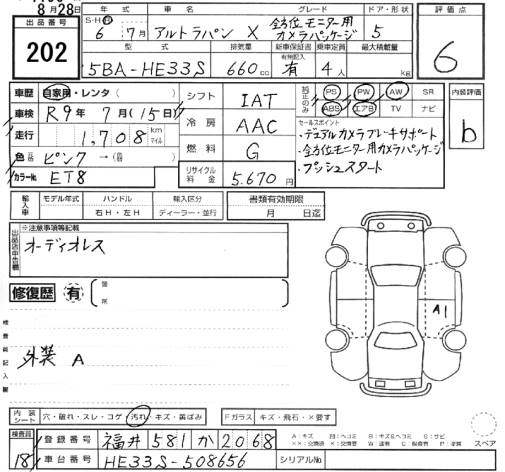 8月28日
出品番号
202
年式
車名
グレード
ドア・形状
評価点
S・H・R
6年 7月
アルトラパン X
全方位モニター用
カメラパッケージ
5
6
型式
排気量
新車保証書
有無記入
乗車定員
最大積載量
5BA-HE33S
660cc
有
4人
kg
車歴
自家用・レンタ( )
車検
R9年 7月(15日)
走行
1,708
km
マイル
色
ピンク→
カラーNo.
ET8
シフト
IAT
冷房
AAC
燃料
G
リサイクル料金
5,670円
純正のみ
PS PW AW SR
ABS エアB TV ナビ
セールスポイント
・デュアルカメラブレーキサポート
・全方位モニター用カメラパッケージ
・プッシュスタート
内装評価
b
輸入車
モデル年式
ハンドル
右H・左H
輸入区分
ディーラー・並行
書類有効期限
月 日迄
※注意事項等記載
オーディオレス
修復歴
有
箇所
検査員記入欄
外装 A
A1
内装シート
穴・破れ・スレ・コゲ・汚れ・キズ・黄ばみ
Fガラス
キズ・飛石・X要す
スペア
検査員
18
登録番号
福井 581 か 2068
車台番号
HE33S-508656
シリアルNo.
A:キズ